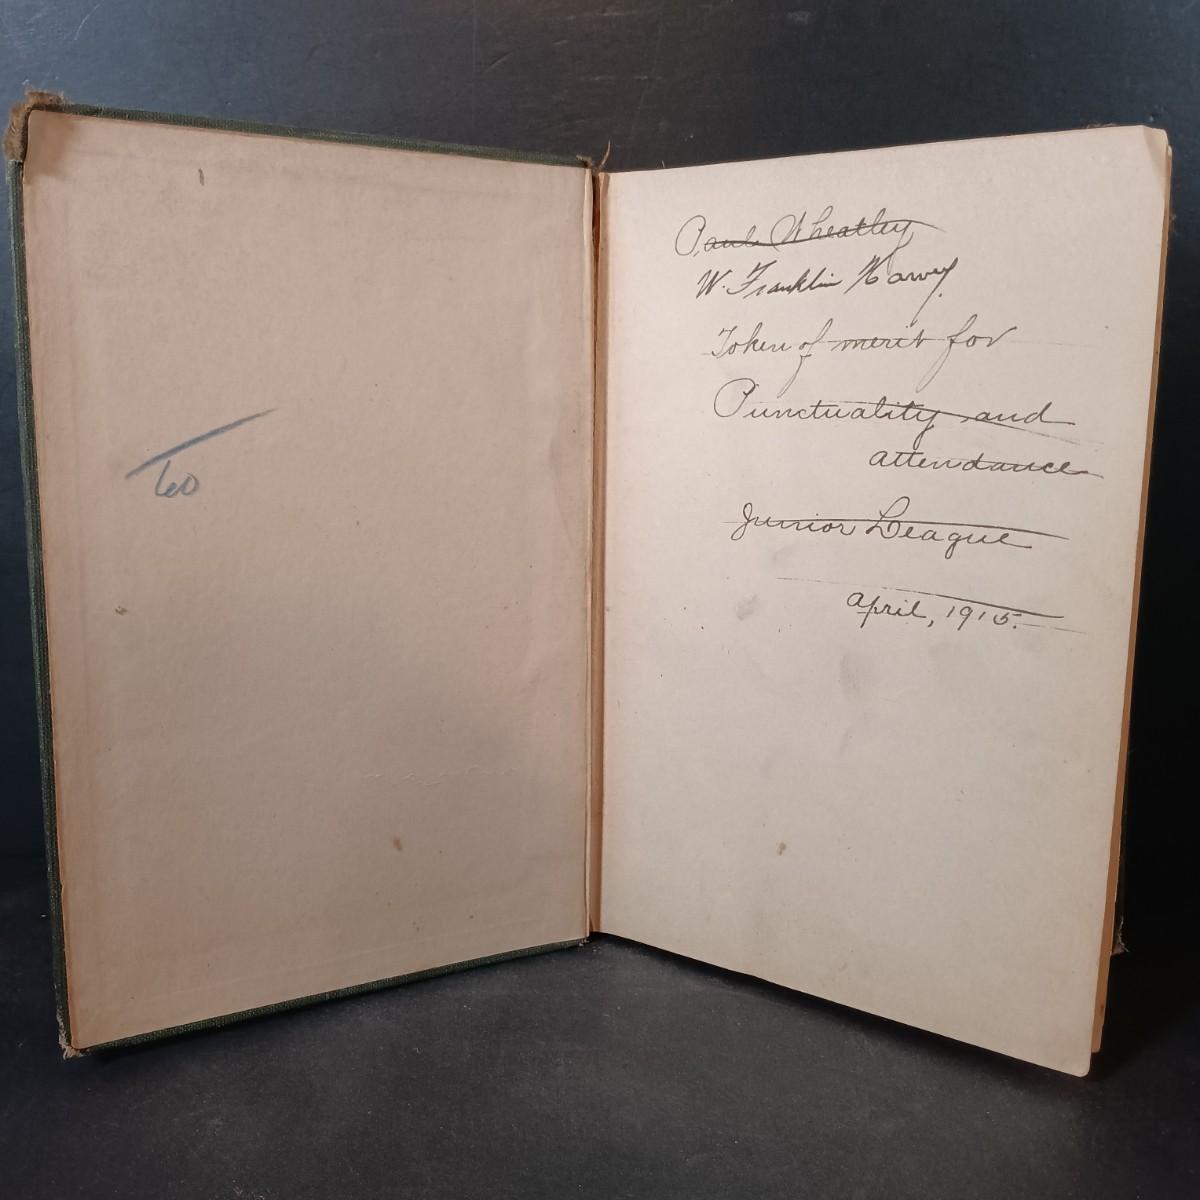 60
Paul Wheatley
W. Franklin Harvey.
Token of merit for
Punctuality and
attendance
Junior League
April, 1915.